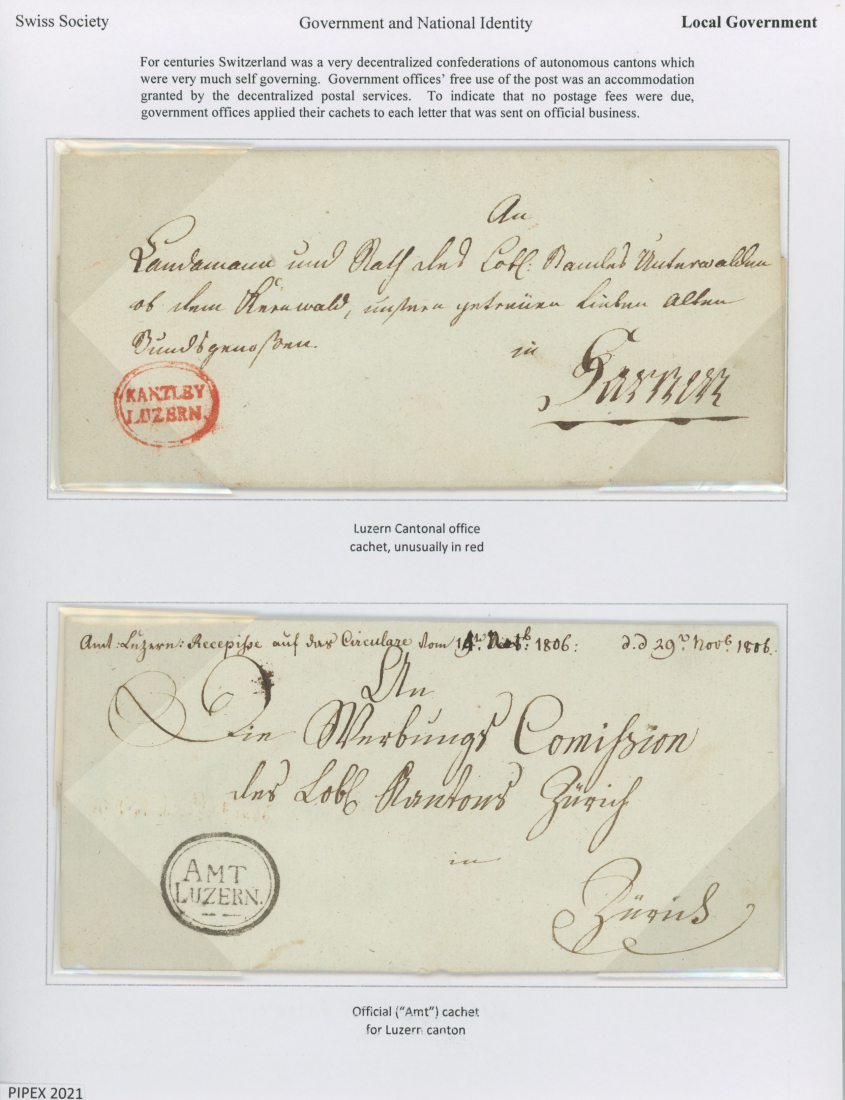 Swiss Society Government and National Identity Local Government
For centuries Switzerland was a very decentralized confederations of autonomous cantons which
were very much self governing. Government offices' free use of the post was an accommodation
granted by the decentralized postal services. To indicate that no postage fees were due,
government offices applied their cachets to each letter that was sent on official business.
An
Landamann und Rath des Lobl: Standes Unterwalden
ob dem Kernwald, unsern getreüen lieben Alten
Bundsgenoßen.
in
Sarnen
KANZLEY
LUZERN.
Luzern Cantonal office
cachet, unusually in red
Amt: Luzern: Recepisse auf das Circulare vom 1806: d.d 29 Novb. 1806.
An
Die Werbungs Comission
des Lobl Kantons Zürich
in
Zürich
AMT
LUZERN.
Official ("Amt") cachet
for Luzern canton
PIPEX 2021